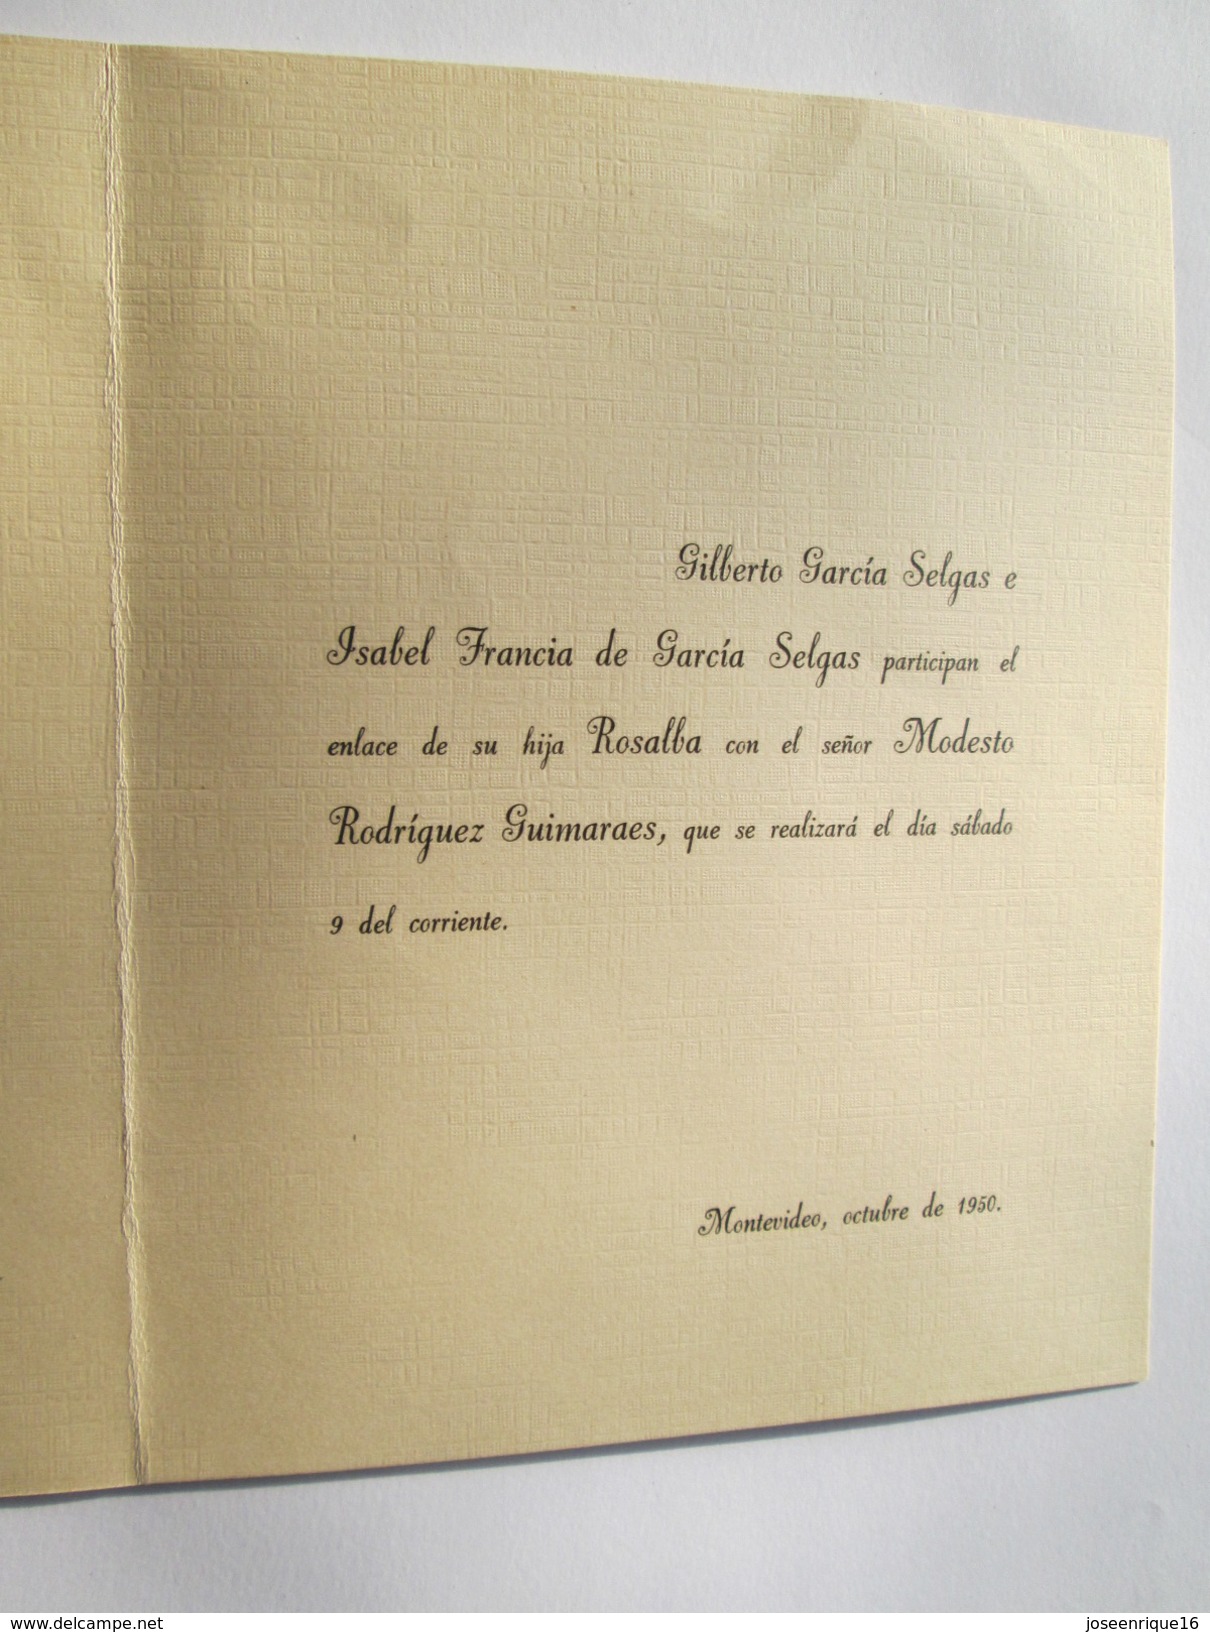 Gilberto García Selgas e
Isabel Francia de García Selgas participan el
enlace de su hija Rosalba con el señor Modesto
Rodríguez Guimaraes, que se realizará el día sábado
9 del corriente.
Montevideo, octubre de 1950.
www.delcampe.net
joseenrique16